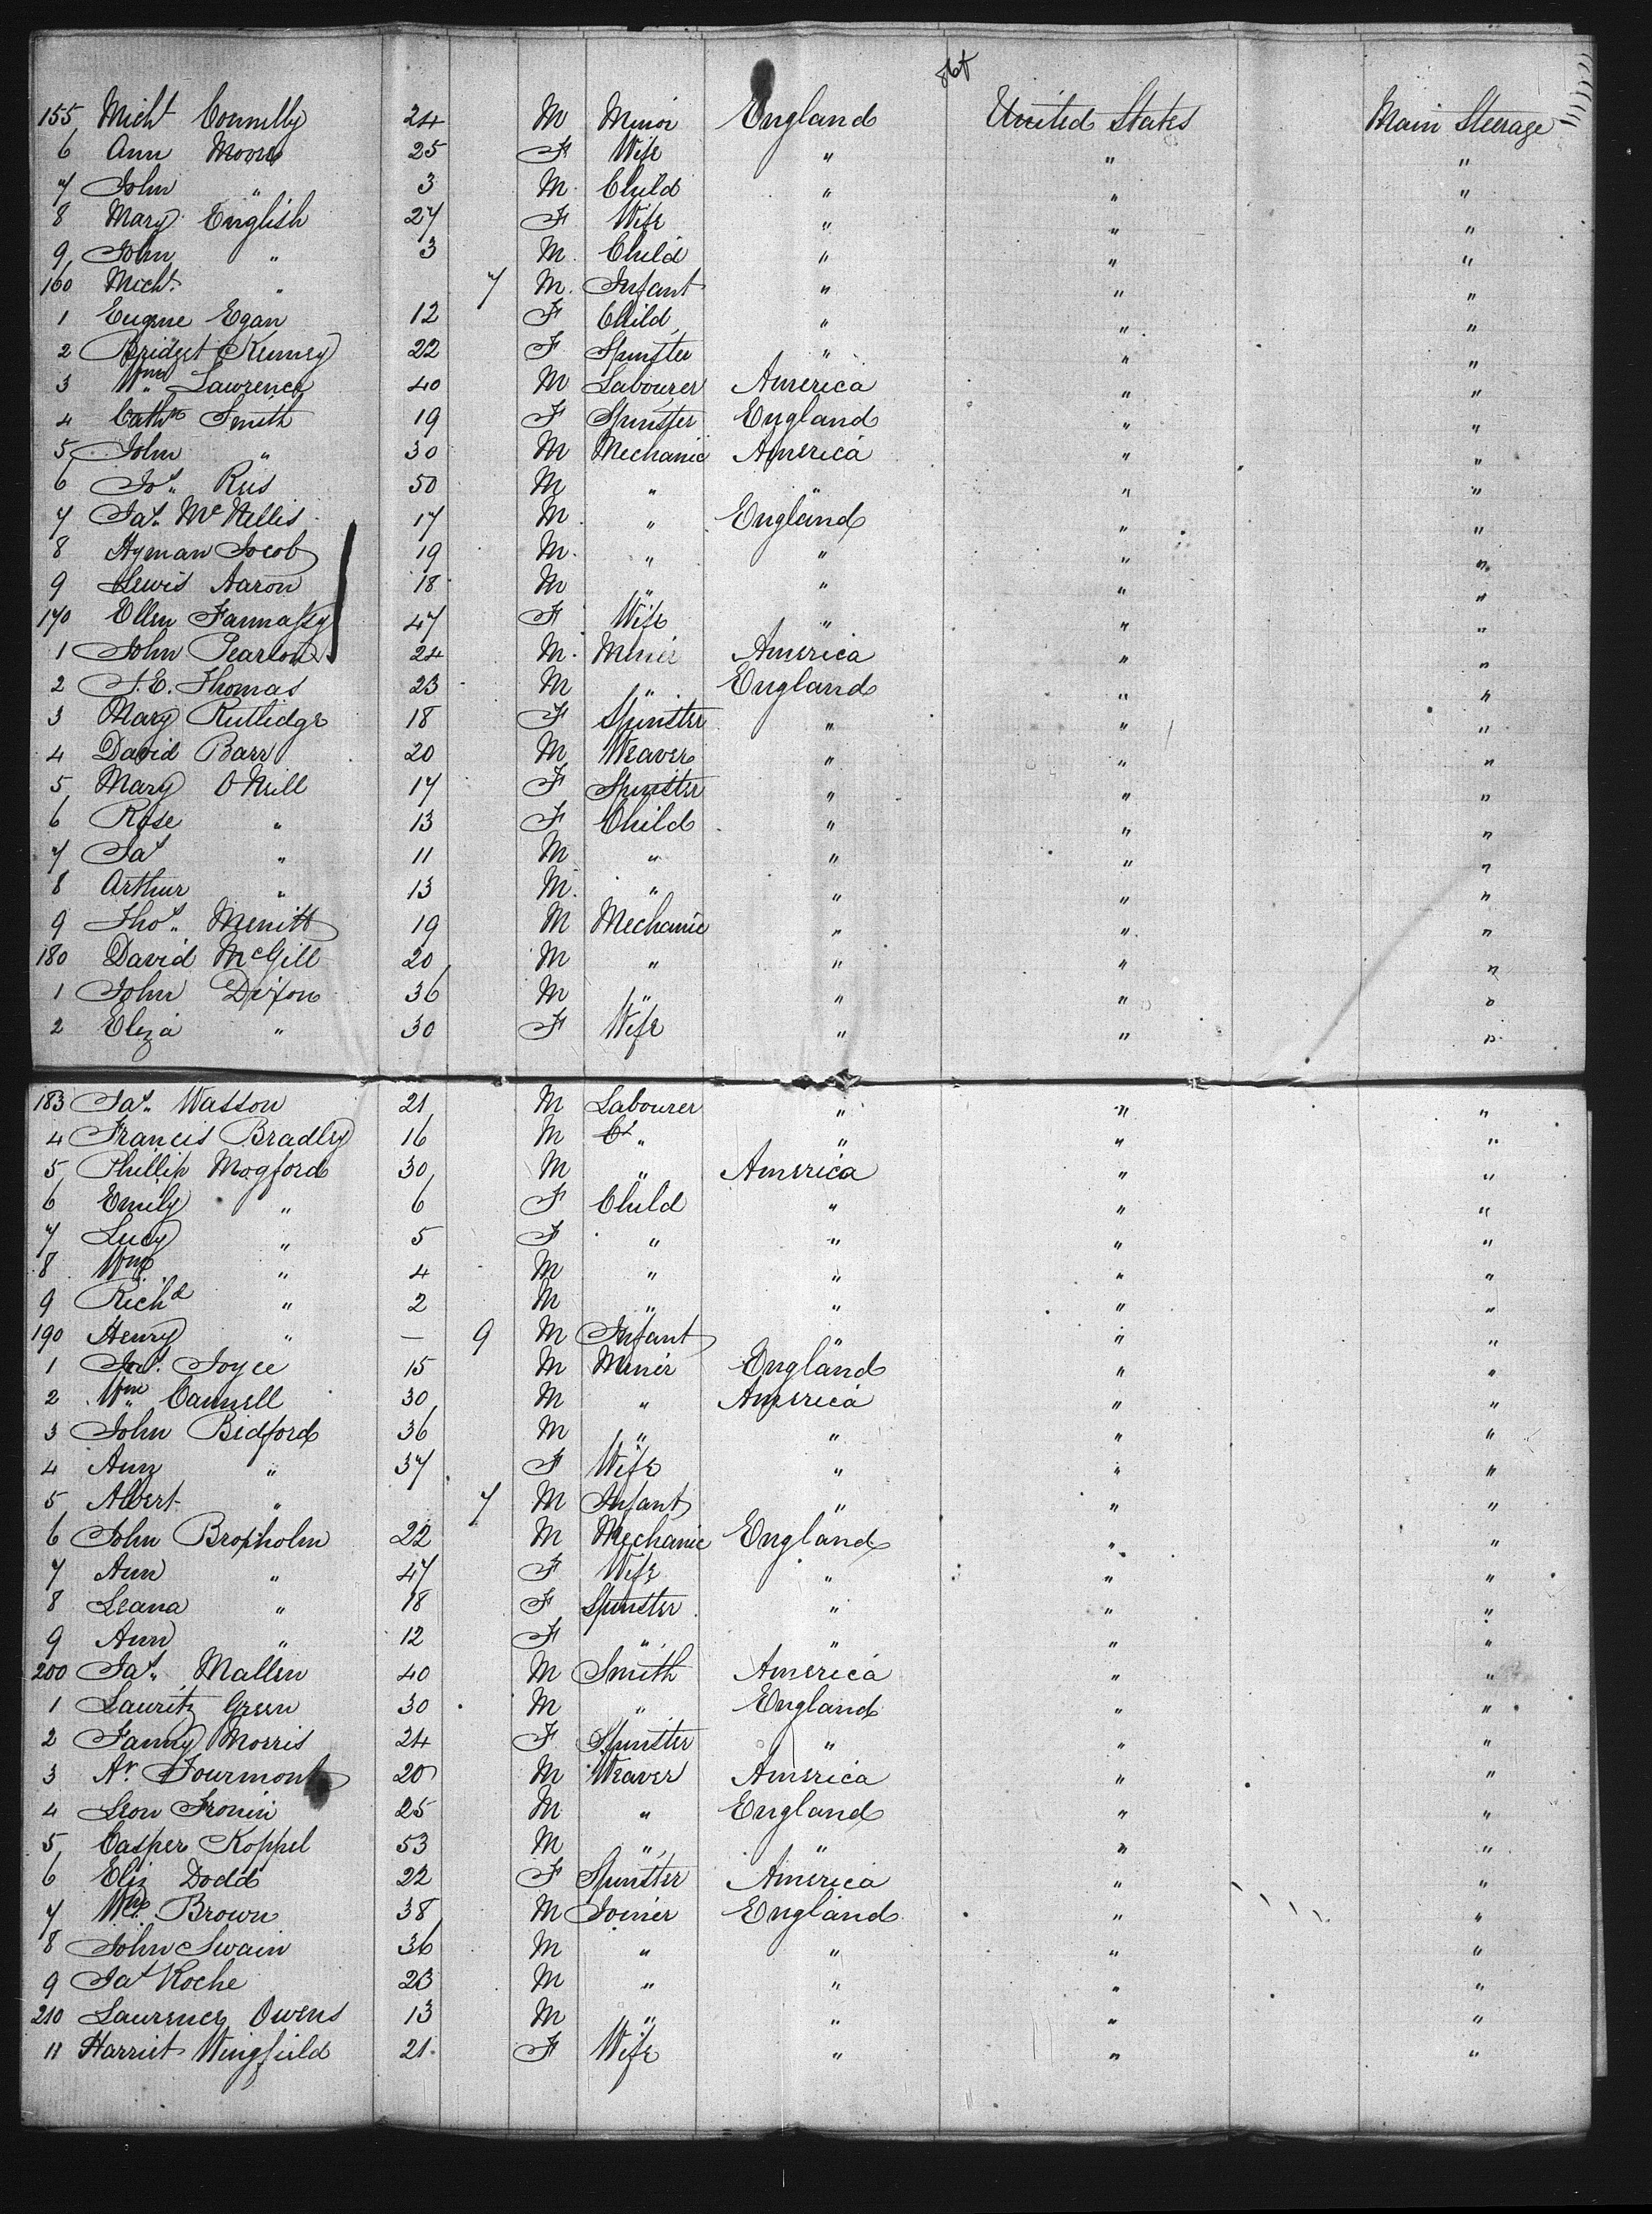 155 Michl Connelly 24 M Minor England United States Main Steerage
6 Ann Moore 25 F Wife " " "
7 John " 3 M Child " " "
8 Mary English 27 F Wife " " "
9 John " 3 M Child " " "
160 Michl " 7 M Infant " " "
1 Eugene Egan 12 F Child " " "
2 Bridget Kenney 22 F Spinster " " "
3 Wm Lawrence 40 M Labourer America " "
4 Cathe Smith 19 F Spinster England " "
5 John " 30 M Mechanic America " "
6 Jos Rees 50 M " " " "
7 Jas McNellis 17 M " England " "
8 Hyman Jocob 19 M " " " "
9 Lewis Aaron 18 M " " " "
170 Ellen Fannassy 47 F Wife " " "
1 John Pearson 24 M Miner America " "
2 J.E. Thomas 23 M " England " "
3 Mary Rutlidge 18 F Spinster " " "
4 David Barr 20 M Weaver " " "
5 Mary ONeill 17 F Spinster " " "
6 Rose " 13 F Child " " "
7 Jas " 11 M " " " "
8 Arthur " 13 M " " " "
9 Thos Merritt 19 M Mechanic " " "
180 David McGill 20 M " " " "
1 John Dixon 36 M " " " "
2 Eliza " 30 F Wife " " "
183 Jas Watson 21 M Labourer " " "
4 Francis Bradley 16 M " " " "
5 Phillip Mogford 30 M " America " "
6 Emily " 6 F Child " " "
7 Lucy " 5 F " " " "
8 Wm " 4 M " " " "
9 Richd " 2 M " " " "
190 Henry " — 9 M Infant " " "
1 Jas Joyce 15 M Miner England " "
2 Wm Cannell 30 M " America " "
3 John Bidford 36 M " " " "
4 Ann " 37 F Wife " " "
5 Albert " 7 M Infant " " "
6 John Broxholm 22 M Mechanic England " "
7 Ann " 47 F Wife " " "
8 Leana " 18 F Spinster " " "
9 Ann " 12 F " " " "
200 Jas Mallen 40 M Smith America " "
1 Lauritz Green 30 M " England " "
2 Fanny Morris 24 F Spinster " " "
3 Ar Fourmont 20 M Weaver America " "
4 Leon Fronin 25 M " England " "
5 Casper Koppel 53 M " " " "
6 Eliz Dodd 22 F Spinster America " "
7 Wm Brown 38 M Joiner England " "
8 John Swain 36 M " " " "
9 Jas Roche 23 M " " " "
210 Laurence Owens 13 M " " " "
11 Harriet Wingfield 21 F Wife " " "